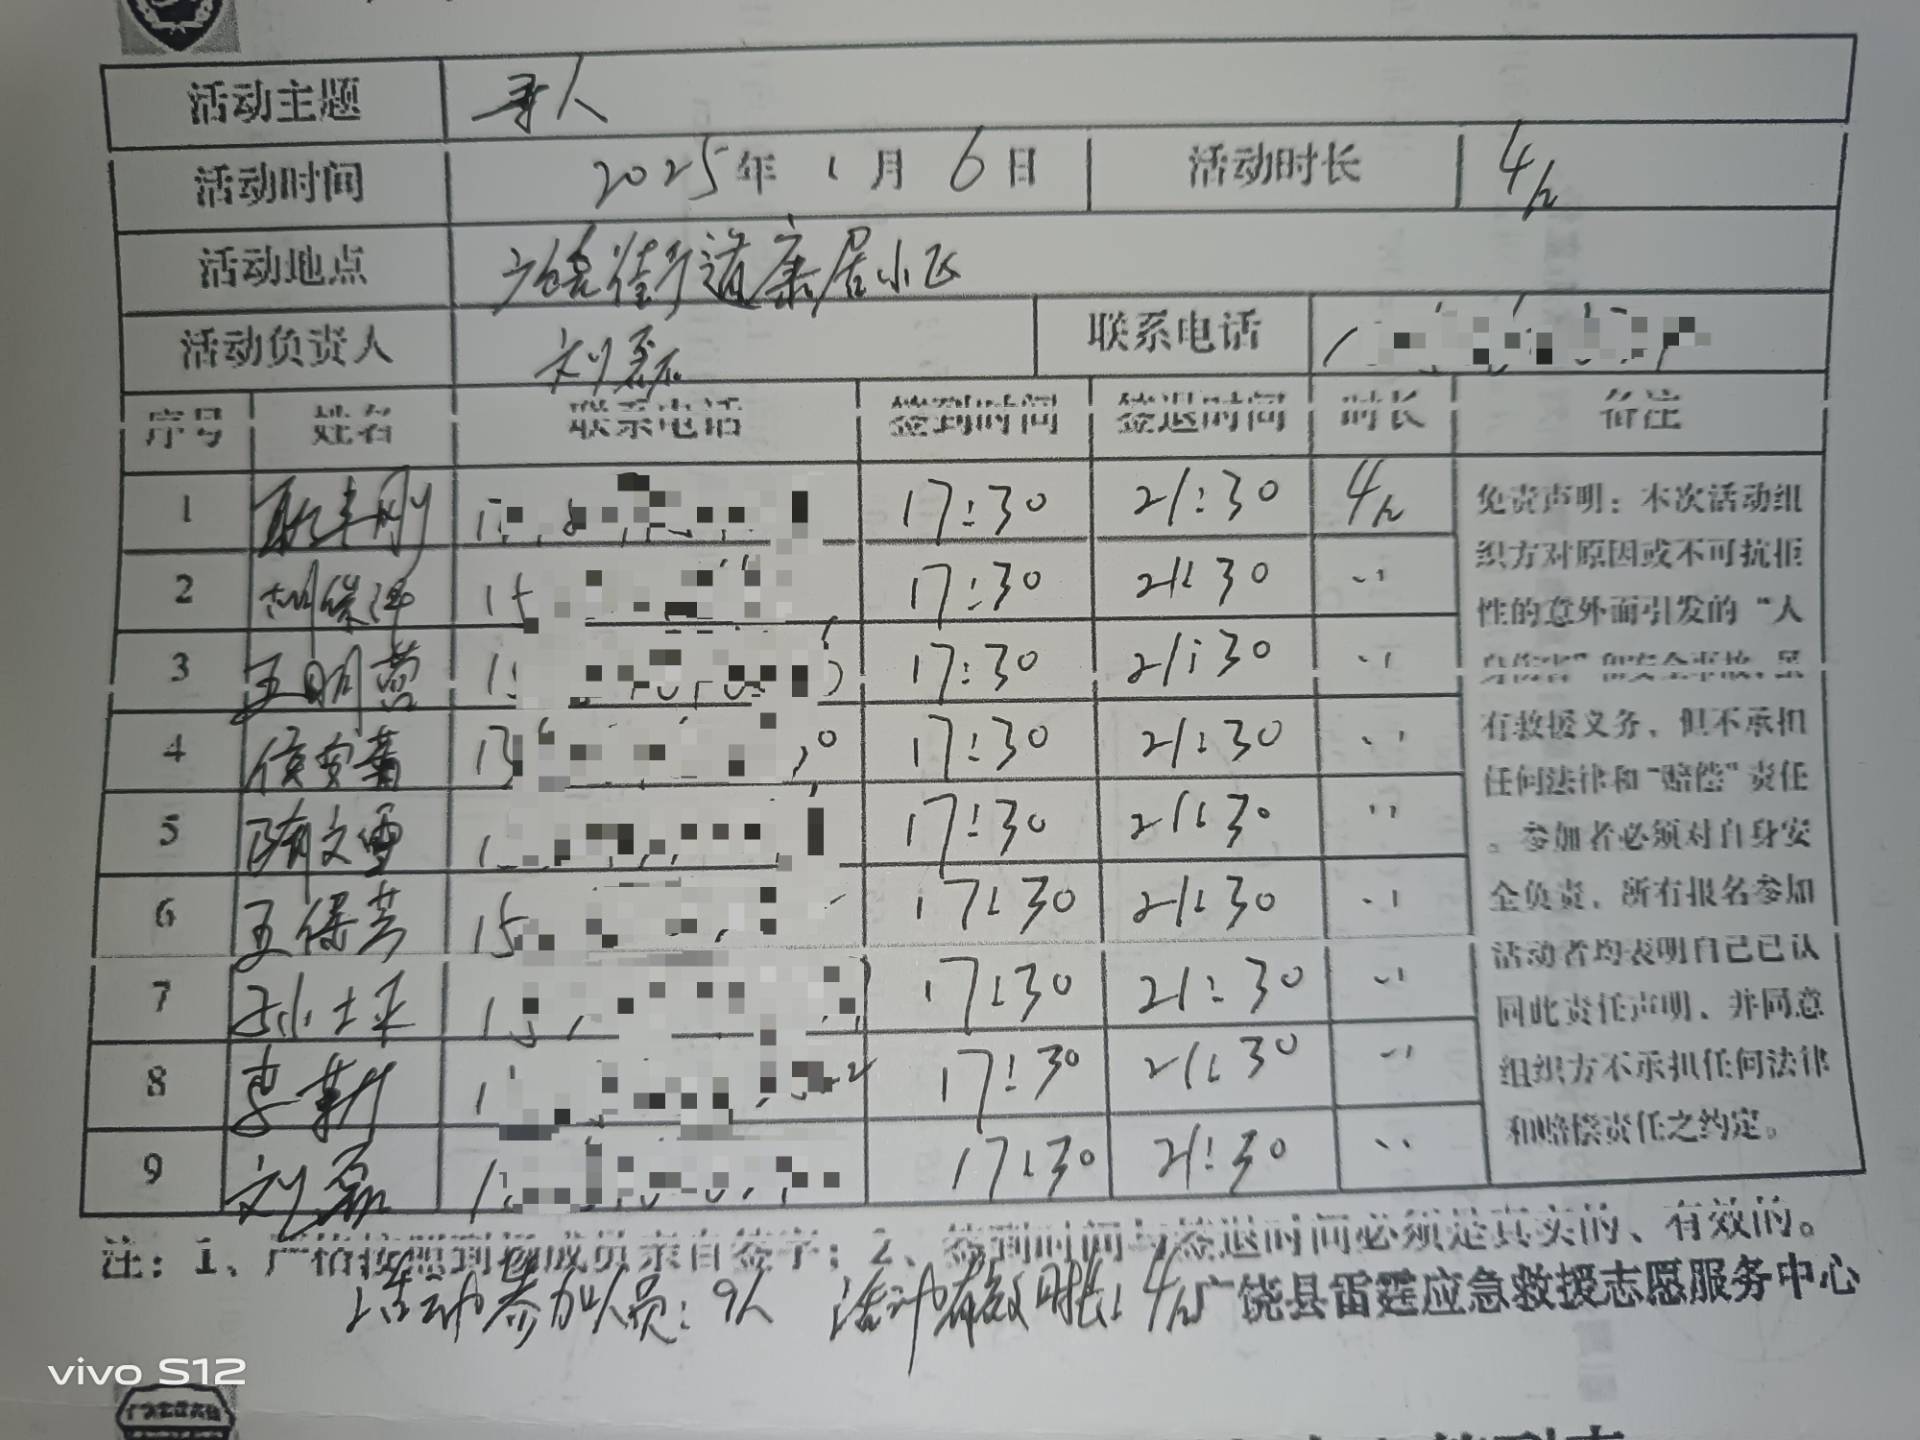 活动主题 寻人
活动时间 2025年1月6日 活动时长 4h
活动地点 广饶街道康居小区
活动负责人 刘磊 联系电话
序号 姓名 联系电话 签到时间 签退时间 时长 备注
1 17:30 21:30 4h
2 17:30 21:30 〃
3 王明芳 17:30 21:30 〃
4 17:30 21:30 〃
5 隋文雪 17:30 21:30 〃
6 王保芳 17:30 21:30 〃
7 孙士平 17:30 21:30 〃
8 李新 17:30 21:30 〃
9 刘磊 17:30 21:30 〃
免责声明：本次活动组
织方对原因或不可抗拒
性的意外面引发的“人
身伤害”和安全事故，虽
有救援义务，但不承担
任何法律和“赔偿”责任
。参加者必须对自身安
全负责，所有报名参加
活动者均表明自己已认
同此责任声明、并同意
组织方不承担任何法律
和赔偿责任之约定。
注：1、严格按照到场成员亲自签字；2、签到时间与签退时间必须是真实的、有效的。
活动参加人员：9人 活动有效时长：4h
广饶县雷霆应急救援志愿服务中心
vivo S12